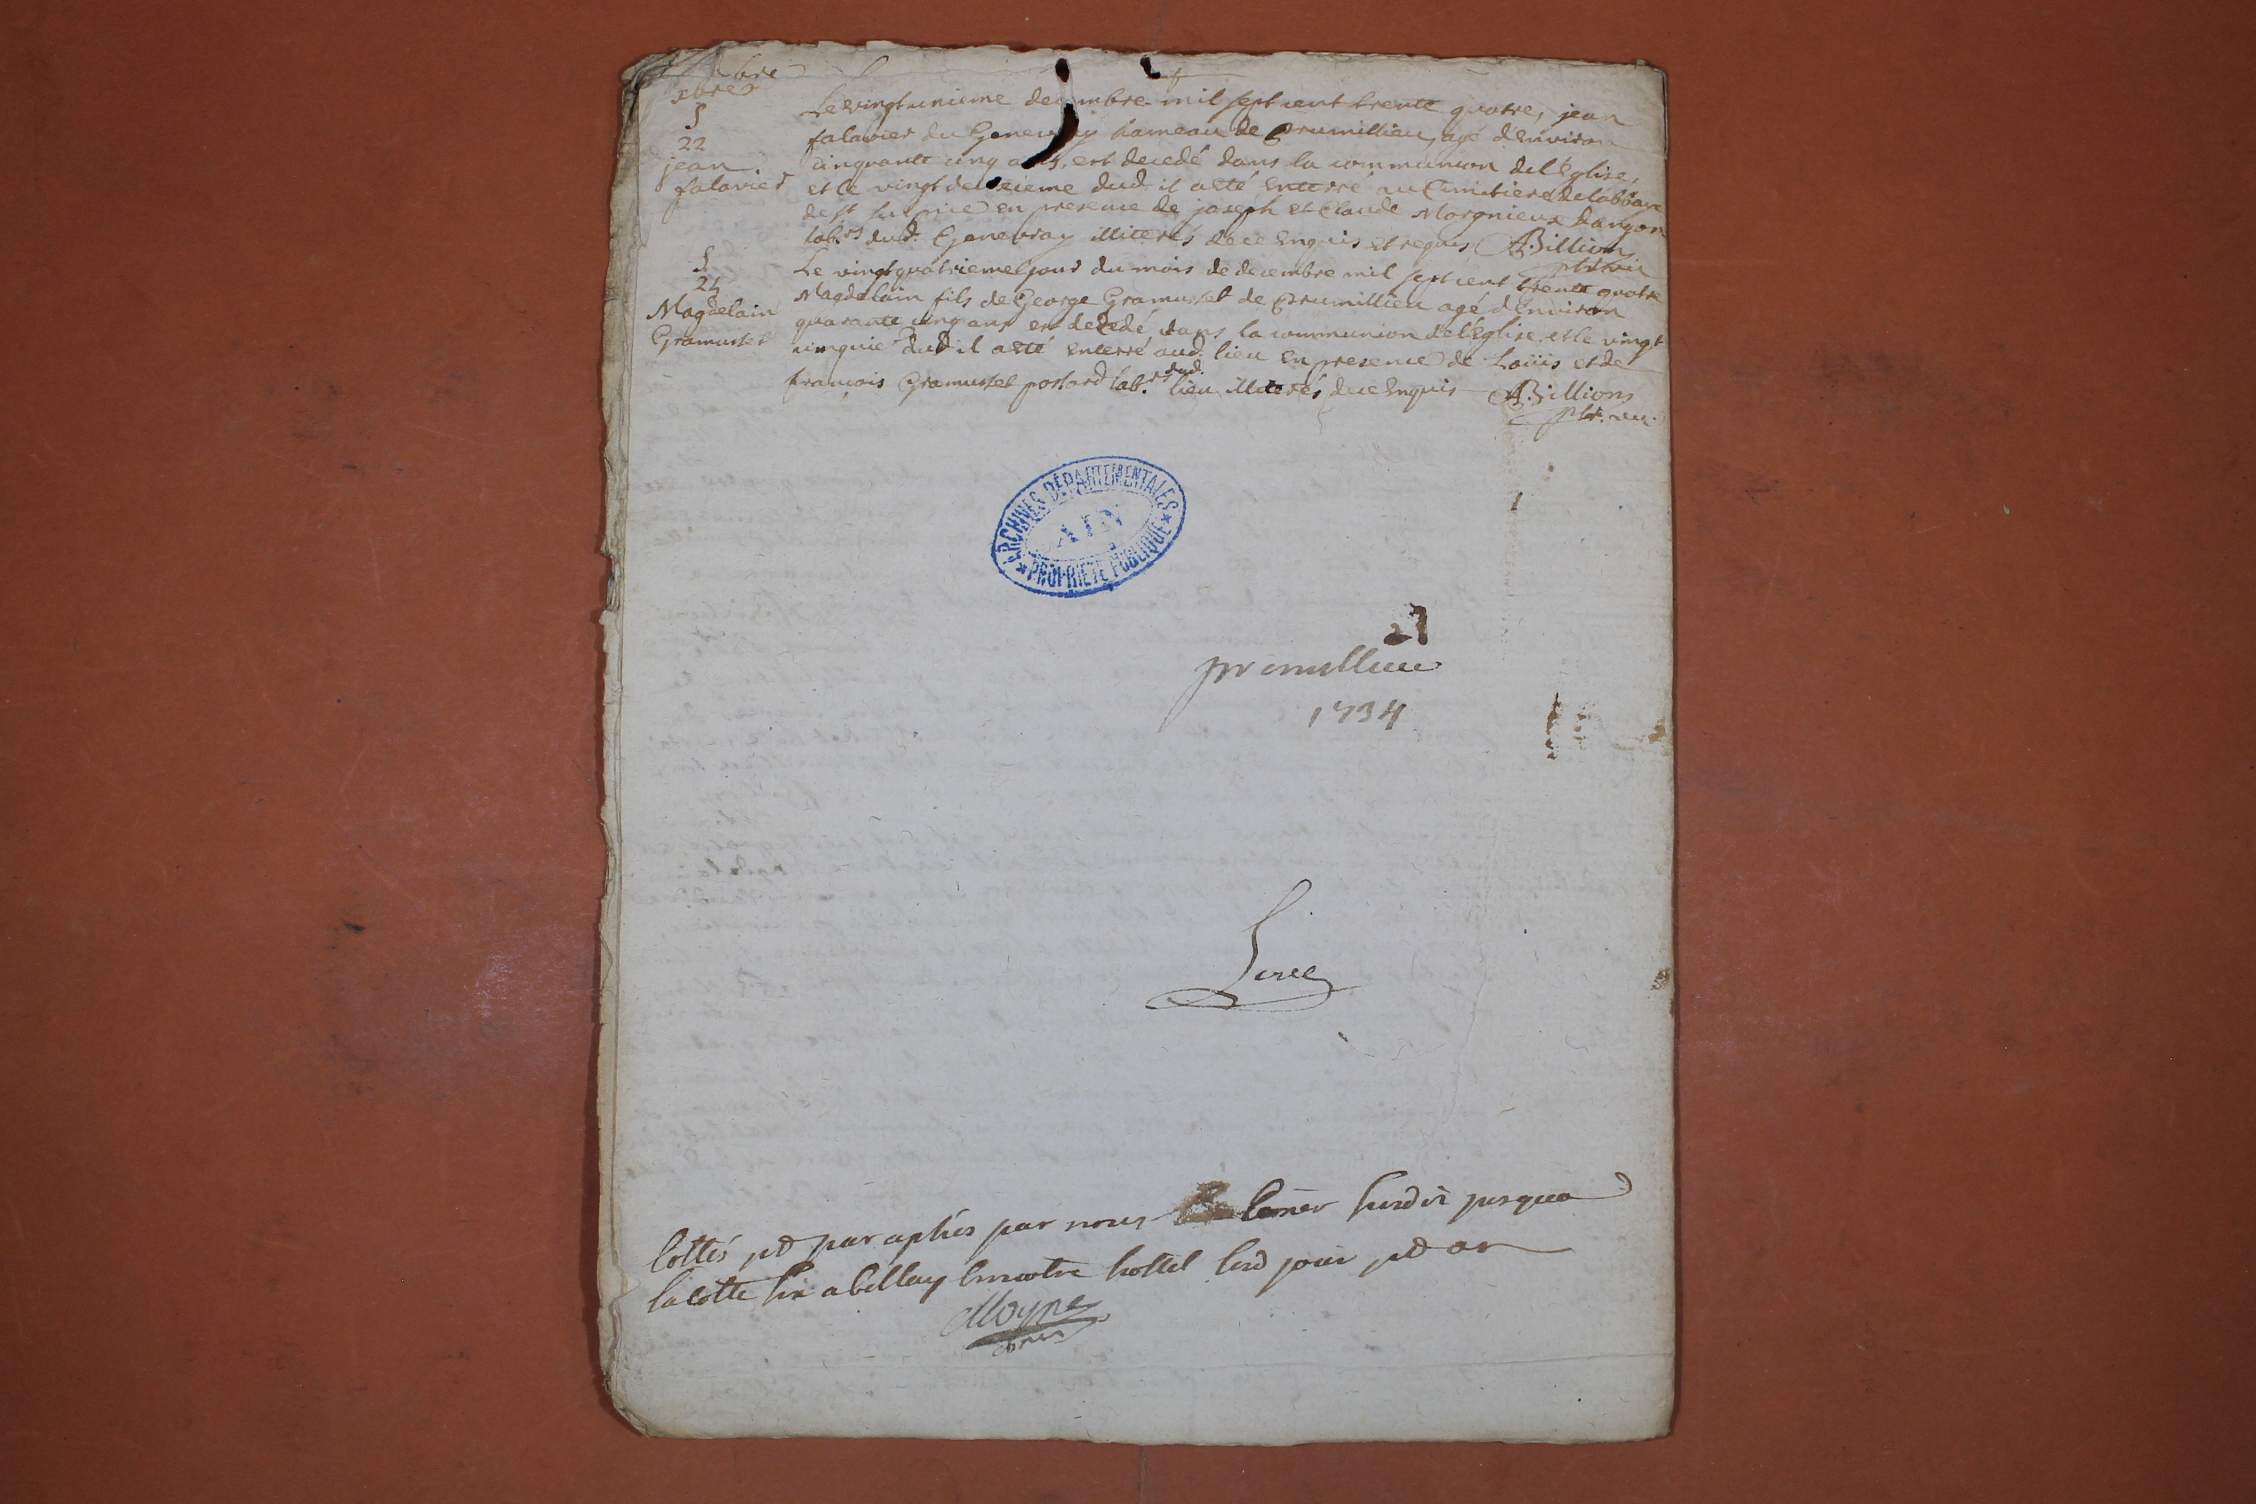 xbre
S
22
jean
falavier
Le vingtunieme decembre mil sept cent trente quatre, jean
falavier du Genevray hameau de Prumillieu, agé d'Environ
cinquante cinq ans, est decedé dans la communion de l'Eglise,
et le vingtdeuxieme dud. il a eté Enterré au Cimetiere de l'abbaye
de st Sulpice en presence de joseph et Claude Morgnieux
lab.rs dud. Genevray illiterés de ce Enquis et requis ABillion
S
24
Magdelain
Gramusset
Le vingtquatrieme jour du mois de decembre mil sept cent trente quatre
Magdelain fils de George Gramusset de Prumillieu agé d'Environ
quarante cinq ans est decedé dans la communion de l'Eglise, et le vingt
cinquie dud. il a eté enterré aud. lieu En presence de Loüis et de
francois Gramusset postard lab.rs dud. lieu illiterés de ce Enquis ABillions
ptr. vic.
ARCHIVES DÉPARTEMENTALES
AIN
PROPRIÉTÉ PUBLIQUE
premillieu
1734
Cottés et paraphés par nous premier jusqua
la cotte six a bellay En notre hottel jour et an
Moyne